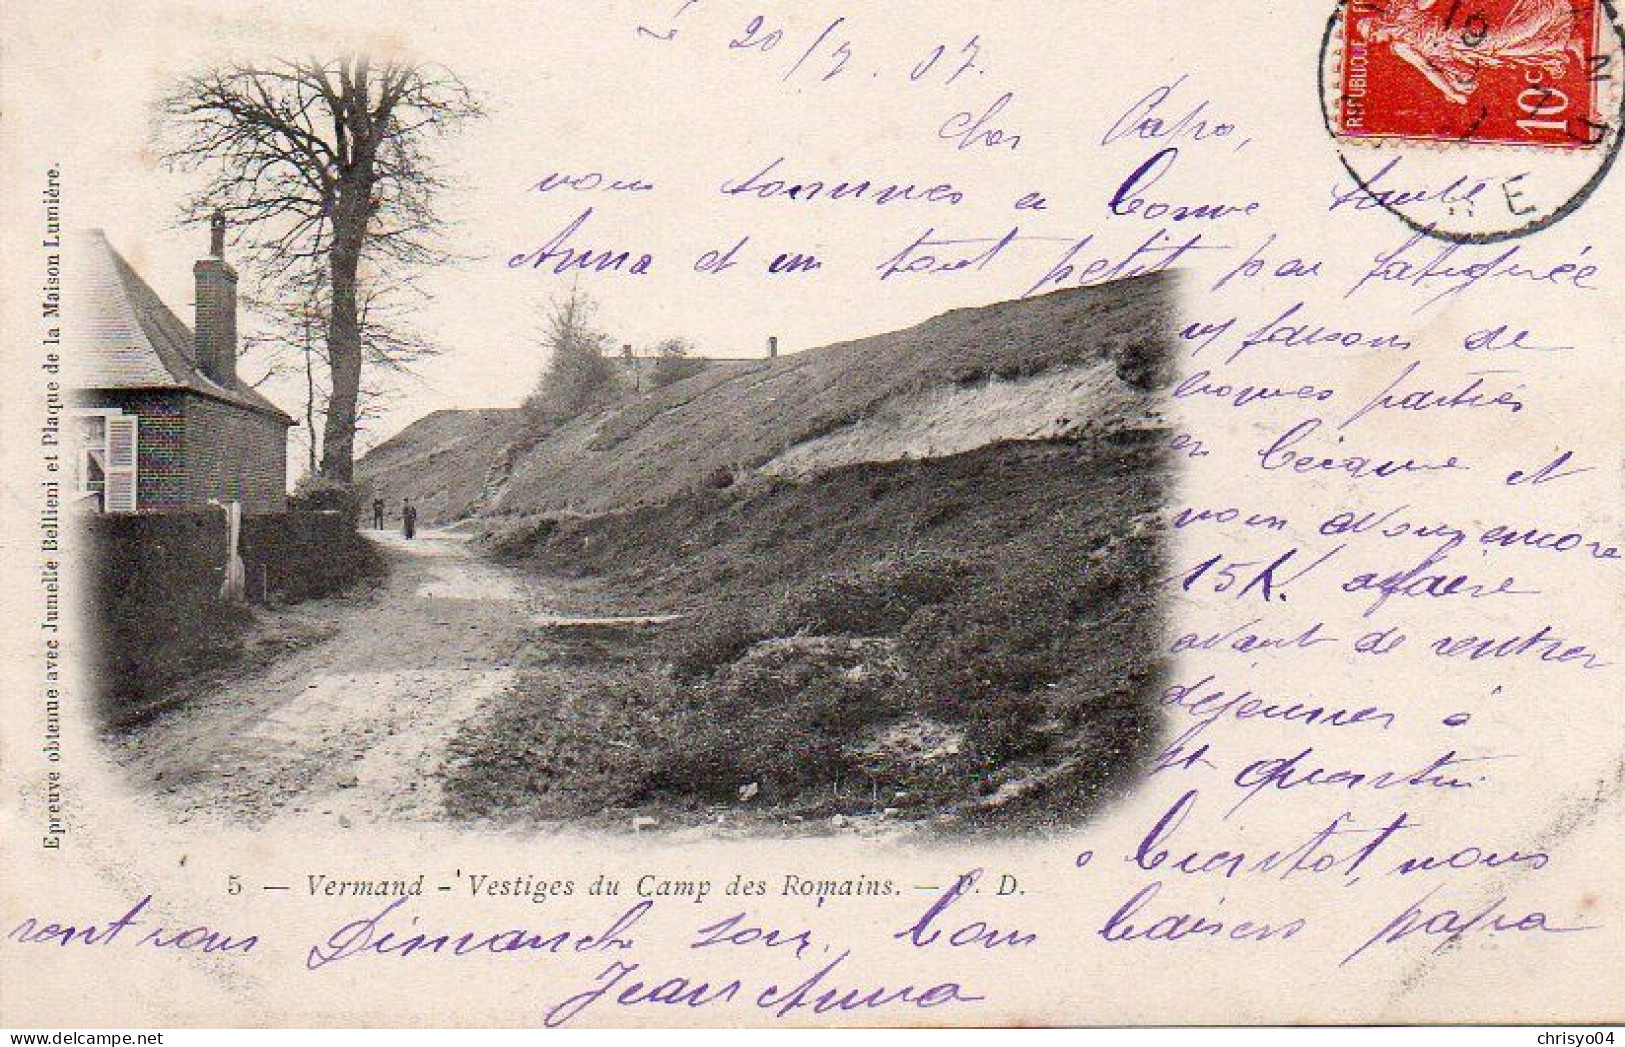 Le 20/7.07.
cher Papa,
nous sommes en bonne santé
Anna et un tout petit peu fatiguée
faisons de
bonnes parties
en bécane et
nous avons encore
15 K. a faire
avant de rentrer
dejeuner à
St Quentin
a bientôt, nous
rentrerons Dimanche soir. bons baisers papa
Jean Anna
REPUBLIQUE F
10c
Epreuve obtenue avec Jumelle Bellieni et Plaque de la Maison Lumière.
5 — Vermand - Vestiges du Camp des Romains. — D. D.
chrisyo04